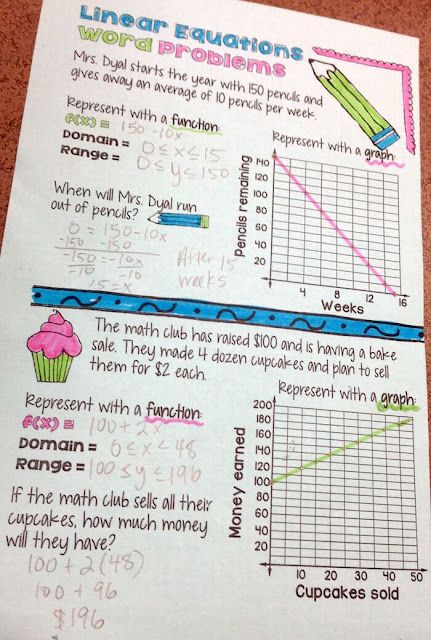 Linear Equations
word problems
Mrs. Dyal starts the year with 150 pencils and
gives away an average of 10 pencils per week.
Represent with a function:
f(x) = 150 - 10x
Domain = 0 ≤ x ≤ 15
Range = 0 ≤ y ≤ 150
When will Mrs. Dyal run
out of pencils?
0 = 150 - 10x
-150 -150
-150 = -10x
-10 -10
15 = x
After 15
weeks
Represent with a graph:
Pencils remaining
140
120
100
80
60
40
20
4 8 12 16
Weeks
The math club has raised $100 and is having a bake
sale. They made 4 dozen cupcakes and plan to sell
them for $2 each.
Represent with a function:
f(x) = 100 + 2x
Domain = 0 ≤ x ≤ 48
Range = 100 ≤ y ≤ 196
If the math club sells all their
cupcakes, how much money
will they have?
100 + 2(48)
100 + 96
$196
Represent with a graph:
Money earned
200
180
160
140
120
100
80
60
40
20
10 20 30 40 50
Cupcakes sold